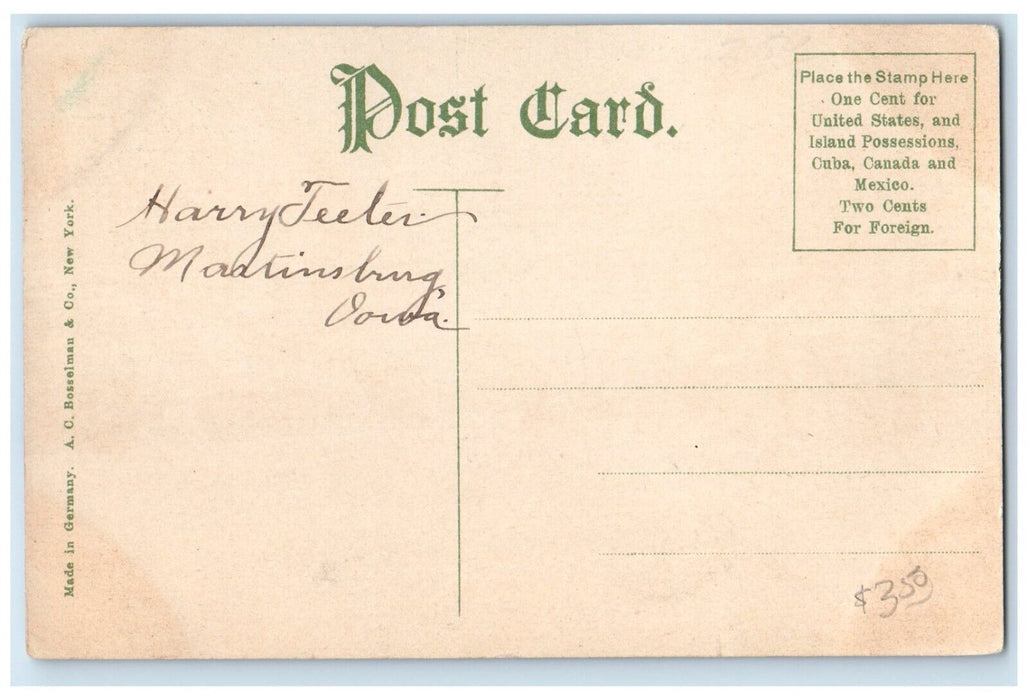 Post Card.
Place the Stamp Here
One Cent for
United States, and
Island Possessions,
Cuba, Canada and
Mexico.
Two Cents
For Foreign.
Harry Teeter
Martinsburg
Iowa.
Made in Germany. A. C. Bosselman & Co., New York.
$3.50